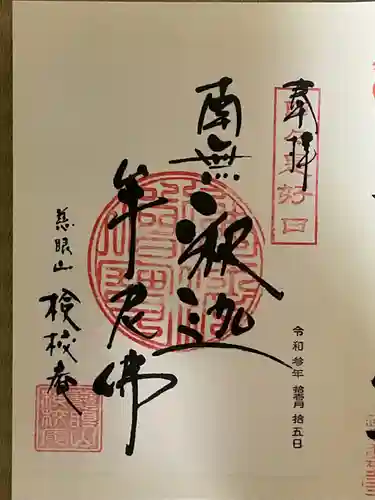 奉拝
好日
南無釈迦
牟尼佛
慈眼山
検校庵
令和参年 拾壱月 拾五日